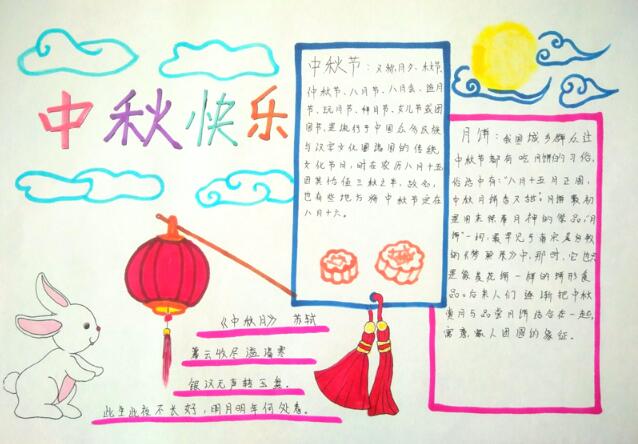 中秋快乐
中秋节：又称月夕、秋节、
仲秋节、八月节、八月会、追月
节、玩月节、拜月节、女儿节或团
圆节,是流行于中国众多民族
与汉字文化圈诸国的传统
文化节日,时在农历八月十五;
因其恰值三秋之半,故名,
也有些地方将中秋节定在
八月十六。
月饼：我国城乡群众过
中秋节都有吃月饼的习俗,
俗话中有:"八月十五月正圆,
中秋月饼香又甜"。月饼最初
是用来祭奉月神的祭品,"月
饼"一词,最早见于南宋吴自牧
的《梦粱录》中,那时,它也只
是像菱花饼一样的饼形食
品。后来人们逐渐把中秋
赏月与品尝月饼结合在一起,
寓意家人团圆的象征。
《中秋月》 苏轼
暮云收尽溢清寒
银汉无声转玉盘。
此生此夜不长好,明月明年何处看。